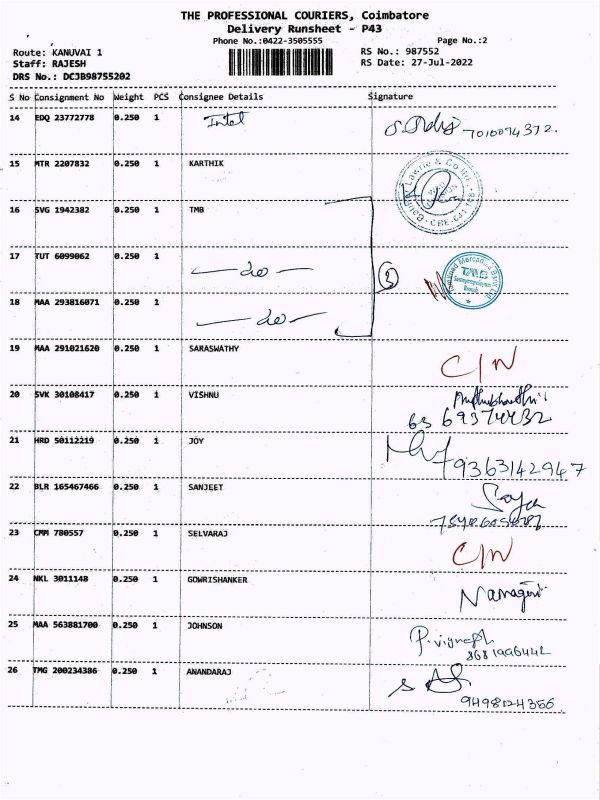 THE PROFESSIONAL COURIERS, Coimbatore
Delivery Runsheet - P43
Phone No.:0422-3505555 Page No.:2
Route: KANUVAI 1 RS No.: 987552
Staff: RAJESH RS Date: 27-Jul-2022
DRS No.: DCJB98755202
S No Consignment No Weight PCS Consignee Details Signature
14 EDQ 23772778 0.250 1 Intel 7010094372.
15 MTR 2207832 0.250 1 KARTHIK
16 SVG 1942382 0.250 1 TMB
17 TUT 6099062 0.250 1 — do —
3 TMB
18 MAA 293816071 0.250 1 — do —
19 MAA 291021620 0.250 1 SARASWATHY C/N
20 SVK 30108417 0.250 1 VISHNU
21 HRD 50112219 0.250 1 JOY 9363142947
22 BLR 165467466 0.250 1 SANJEET
23 CMM 780557 0.250 1 SELVARAJ C/N
24 NKL 3011148 0.250 1 GOWRISHANKER
25 MAA 563881700 0.250 1 JOHNSON P. Vignesh
8681996442
26 TMG 200234386 0.250 1 ANANDARAJ
9498124356